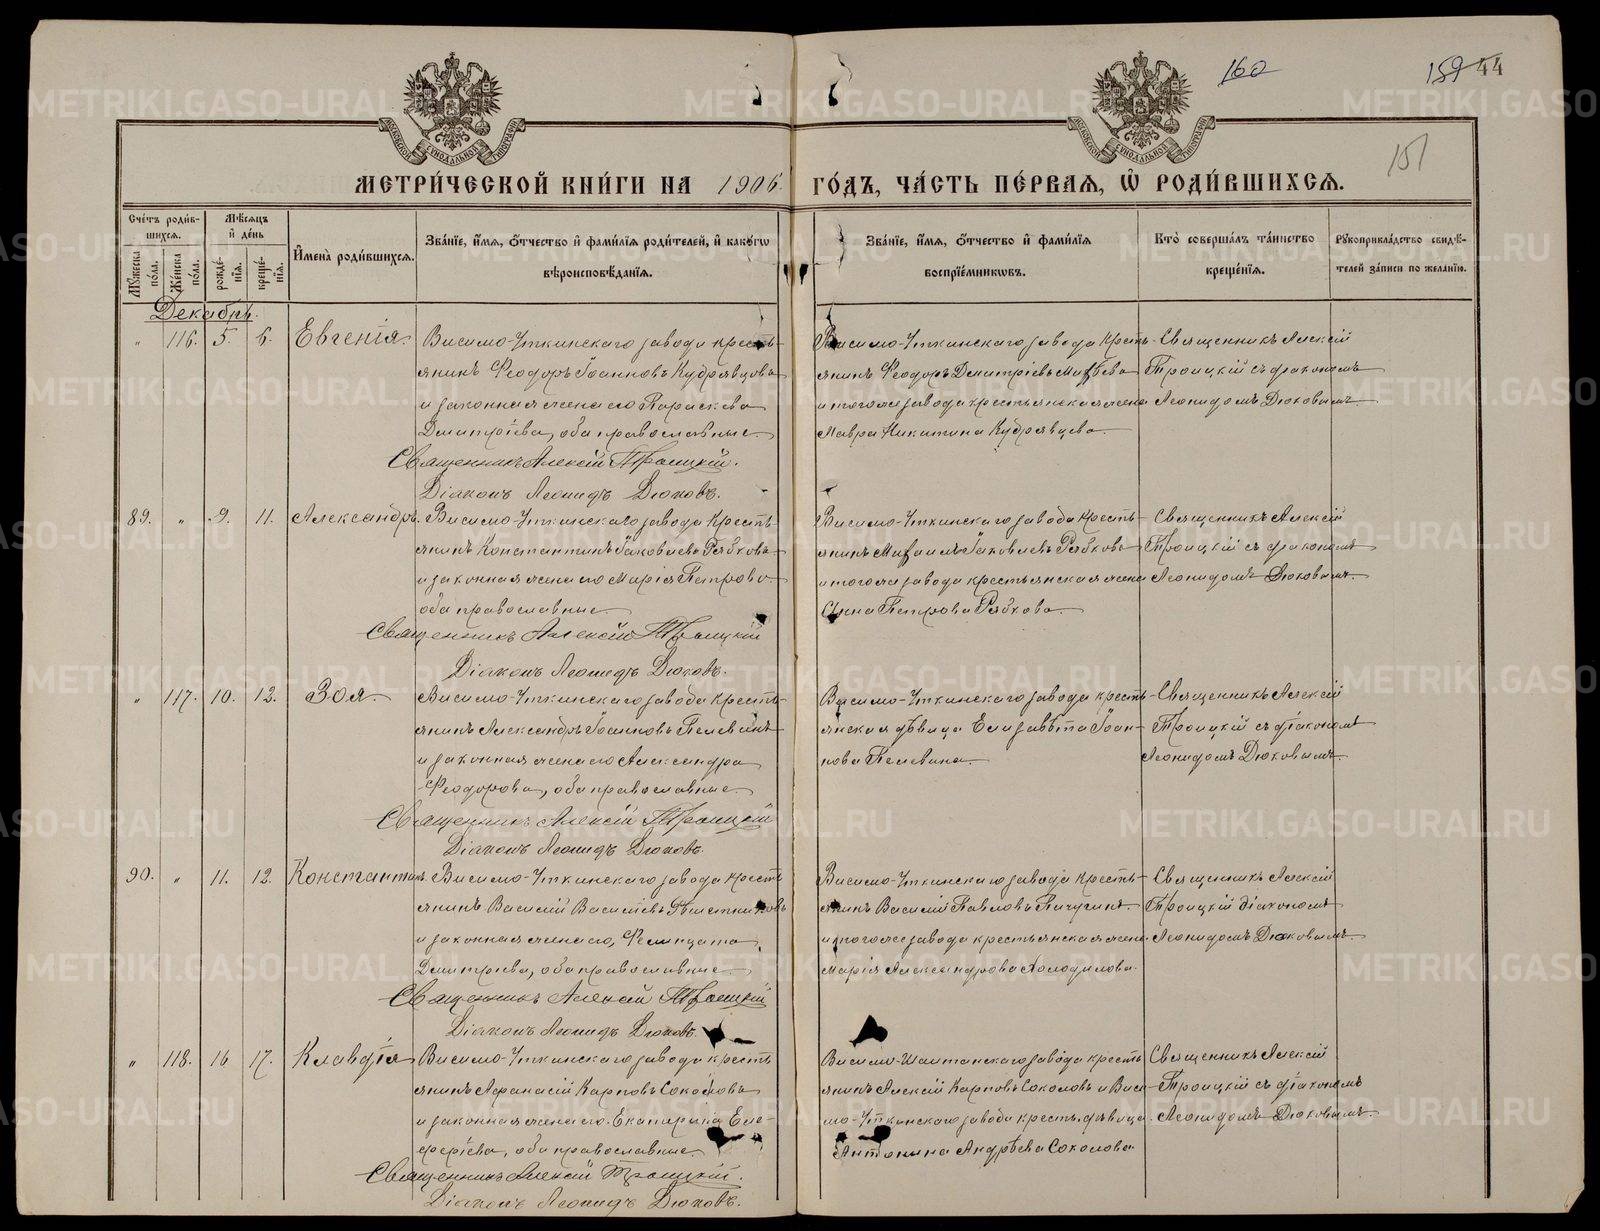 160
159 44
151
МЕТРИ́ЧЕСКОЙ КНИ́ГИ НА 1906 ГО́ДЪ, ЧА́СТЬ ПЕ́РВАЯ, Ѿ РОДИ́ВШИХСѦ.
Сче́тъ роди́вшихсѧ.
Мѣ́сѧцъ и҆ де́нь
Мꙋ́жеска по́ла.
Же́нска по́ла.
рожде́нїѧ.
креще́нїѧ.
И҆мена̀ роди́вшихсѧ.
Зва́нїе, и҆́мѧ, ѻ҆́тчество и҆ фами́лїѧ роди́телей, и҆ како́гѡ вѣроисповѣ́данїѧ.
Зва́нїе, и҆́мѧ, ѻ҆́тчество и҆ фами́лїѧ воспрїе́мникѡвъ.
Кто̀ соверша́лъ та́инство креще́нїѧ.
Рꙋкоприкла́дство свидѣ́телей за́писи по жела́нїю.
Декабрь.
" 116. 5. 6. Евгенія
Висимо-Уткинскаго завода кресть-
янинъ Ѳеодоръ Іоанновъ Кудрявцовъ
и законная жена его Параскева
Димитріева, оба православные
Священникъ Алексій Троицкій.
Діаконъ Леонидъ Дюковъ.
Висимо-Уткинскаго завода кресть-
янинъ Ѳеодоръ Димитріевъ
и того же завода крестьянская жена
Мавра Никитина Кудрявцева.
Священникъ Алексій
Троицкій съ діакономъ
Леонидомъ Дюковымъ.
89. " 9. 11. Александръ.
Висимо-Уткинскаго завода кресть-
янинъ Константинъ Іаковлевъ Рябковъ
и законная жена его Марія Петрова
оба православные
Священникъ Алексій Троицкій
Діаконъ Леонидъ Дюковъ.
Висимо-Уткинскаго завода кресть-
янинъ Михаилъ Іаковлевъ Рябковъ
и того же завода крестьянская жена
Анна Петрова Рябкова.
Священникъ Алексій
Троицкій съ діакономъ
Леонидомъ Дюковымъ.
" 117. 10. 12. Зоя
Висимо-Уткинскаго завода кресть-
янинъ Александръ Іоанновъ Пелевинъ
и законная жена его Александра
Ѳеодорова, оба православные
Священникъ Алексій Троицкій
Діаконъ Леонидъ Дюковъ.
Висимо-Уткинскаго завода кресть-
янская дѣвица Елизавѣта Іоан-
нова Пелевина.
Священникъ Алексій
Троицкій съ діакономъ
Леонидомъ Дюковымъ.
90. " 11. 12. Константинъ
Висимо-Уткинскаго завода кресть-
янинъ Василій Васильевъ Рѣшетниковъ
и законная жена его, Фелицата
Димитріева, оба православные
Священникъ Алексій Троицкій
Діаконъ Леонидъ Дюковъ.
Висимо-Уткинскаго завода кресть-
янинъ Василій Павловъ Пичугинъ
и того же завода крестьянская жена
Марія Александрова Холодилова.
Священникъ Алексій
Троицкій діакономъ
Леонидомъ Дюковымъ.
" 118. 16 17. Клавдія
Висимо-Уткинскаго завода кресть
янинъ Аѳанасій Карповъ Соколовъ
и законная жена его Екатерина Еле-
ферьева, оба православные
Священникъ Алексій Троицкій.
Діаконъ Леонидъ Дюковъ.
Висимо-Шайтанскаго завода кресть
янинъ Алексій Карповъ Соколовъ и Виси-
мо-Уткинскаго завода кресть. дѣвица
Антонина Андрѣева Соколова.
Священникъ Алексій
Троицкій съ діакономъ
Леонидомъ Дюковымъ.
METRIKI.GASO-URAL.RU